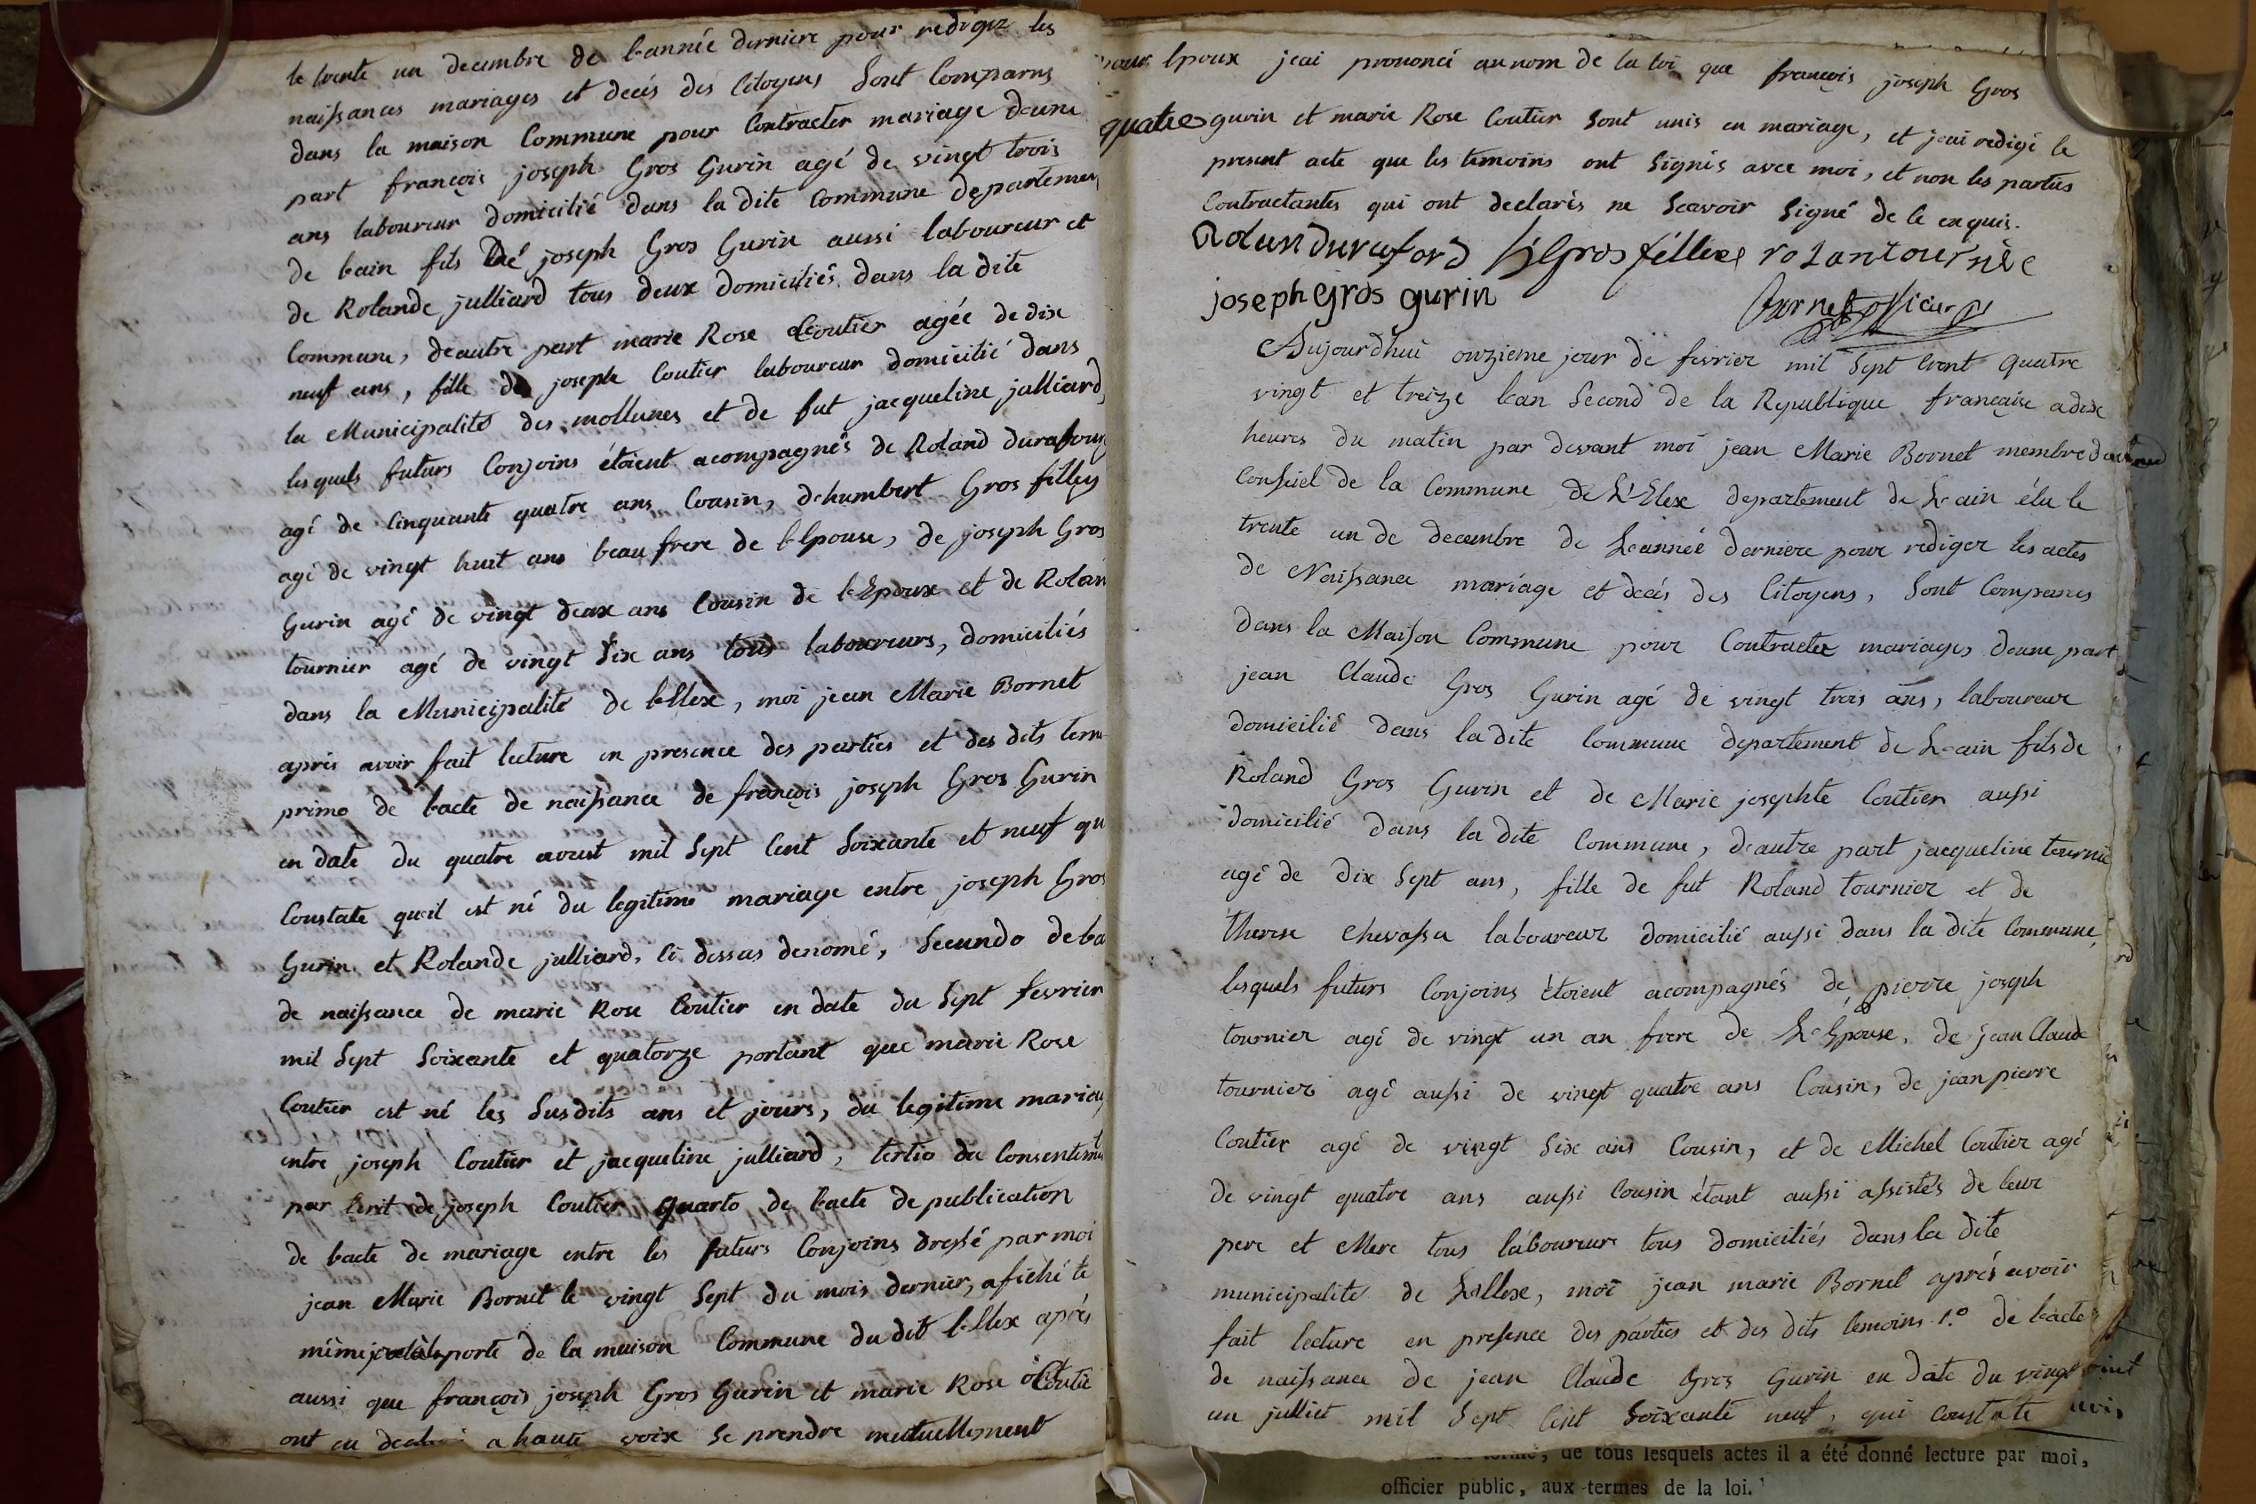 le trente un decembre de l'année derniere pour rediger les
naissances mariages et decés des Citoyens Sont Comparus
dans la maison Commune pour Contracter mariage d'une
part françois joseph Gros Gurin agé de vingt trois
ans laboureur domicilié dans la dite Commune departement
de l'ain fils de joseph Gros Gurin aussi laboureur et
de Rolande julliard tous deux domiciliés dans la dite
Commune, d'autre part marie Rose Coutier agée de dix
neuf ans, fille de joseph Coutier laboureur domicilié dans
la Municipalité des mollunes et de fut jacqueline julliard,
lesquels futurs Conjoins étoient acompagnés de Roland durafourg
agé de Cinquante quatre ans Cousin, d'humbert Gros fillex
agé de vingt huit ans beau frere de l'Epouse, de joseph Gros
Gurin agé de vingt deux ans Cousin de l'Epoux et de Rolan
tournier agé de vingt Six ans tous laboureurs, domiciliés
dans la Municipalité de lellex, moi jean Marie Bornet
aprés avoir fait lecture en presence des parties et des dits tem
primo de l'acte de naissance de françois joseph Gros Gurin
en date du quatre avoust mil Sept Cent Soixante et neuf qu
Constate qu'il est né du legitime mariage entre joseph Gros
Gurin et Rolande julliard, Ci dessus denomé, Secundo de l'a
de naissance de marie Rose Coutier en date du Sept fevrier
mil Sept Soixante et quatorze portant que marie Rose
Coutier est né les Susdits ans et jours, du legitime mariag
entre joseph Coutier et jacqueline julliard, tertio du Consentemt
par Ecrit de joseph Coutier quarto de l'acte de publication
de l'acte de mariage entre les futurs Conjoins dressé par moi
jean Marie Bornet le vingt Sept du mois dernier, afiché le
même jour à la porte de la maison Commune du dit lellex aprés
aussi que françois joseph Gros Gurin et marie Rose Coutie
ont eu declaré a haute voix Se prendre mutuellement
pour Epoux j'eai prononcé au nom de la loi que françois joseph Gros
quatre gurin et marie Rose Coutier Sont unis en mariage, et j'eai redigé le
present acte que les temoins ont Signés avec moi, et non les parties
Contractantes qui ont declarés ne Scavoir Signé de le enquis.
Rolan duraford h Gros fillex rolantournie
joseph Gros gurin
Bornet officier p
Aujourd'hui onzieme jour de fevrier mil Sept Cent quatre
vingt et treize l'an Second de la Republique française a dix
heures du matin par devant moi jean Marie Bornet membre du
Conseiel de la Commune de L'Elex departement de L'ain élu le
trente un de decembre de L'année derniere pour rediger les actes
de Naissance mariage et decés des Citoyens, Sont Comparus
dans la Maison Commune pour Contracter mariages d'une part
jean Claude Gros Gurin agé de vingt trois ans, laboureur
domicilié dans la dite Commune departement de L'ain fils de
Roland Gros Gurin et de Marie josephte Coutier aussi
domicilié dans la dite Commune, d'autre part jacqueline tournie
agé de dix Sept ans, fille de fut Roland tournier et de
therese Chevassu laboureur domicilié aussi dans la dite Commune,
lesquels futurs Conjoins étoient acompagnés de pierre joseph
tournier agé de vingt un an frere de L'Epouse, de jean Claude
tournier agé aussi de vingt quatre ans Cousin, de jean pierre
Coutier agé de vingt Six ans Cousin, et de Michel Coutier agé
de vingt quatre ans aussi Cousin étant aussi assistés de leur
pere et Mere tous laboureurs tous domiciliés dans la dite
municipalité de Lellex, moi jean marie Bornet aprés avoir
fait lecture en presence des parties et des dits temoins 1.º de l'acte
de naissance de jean Claude Gros Gurin en date du vingt
un julliet mil Sept Cent Soixante neuf, qui Constate
de tous lesquels actes il a été donné lecture par moi,
officier public, aux termes de la loi.